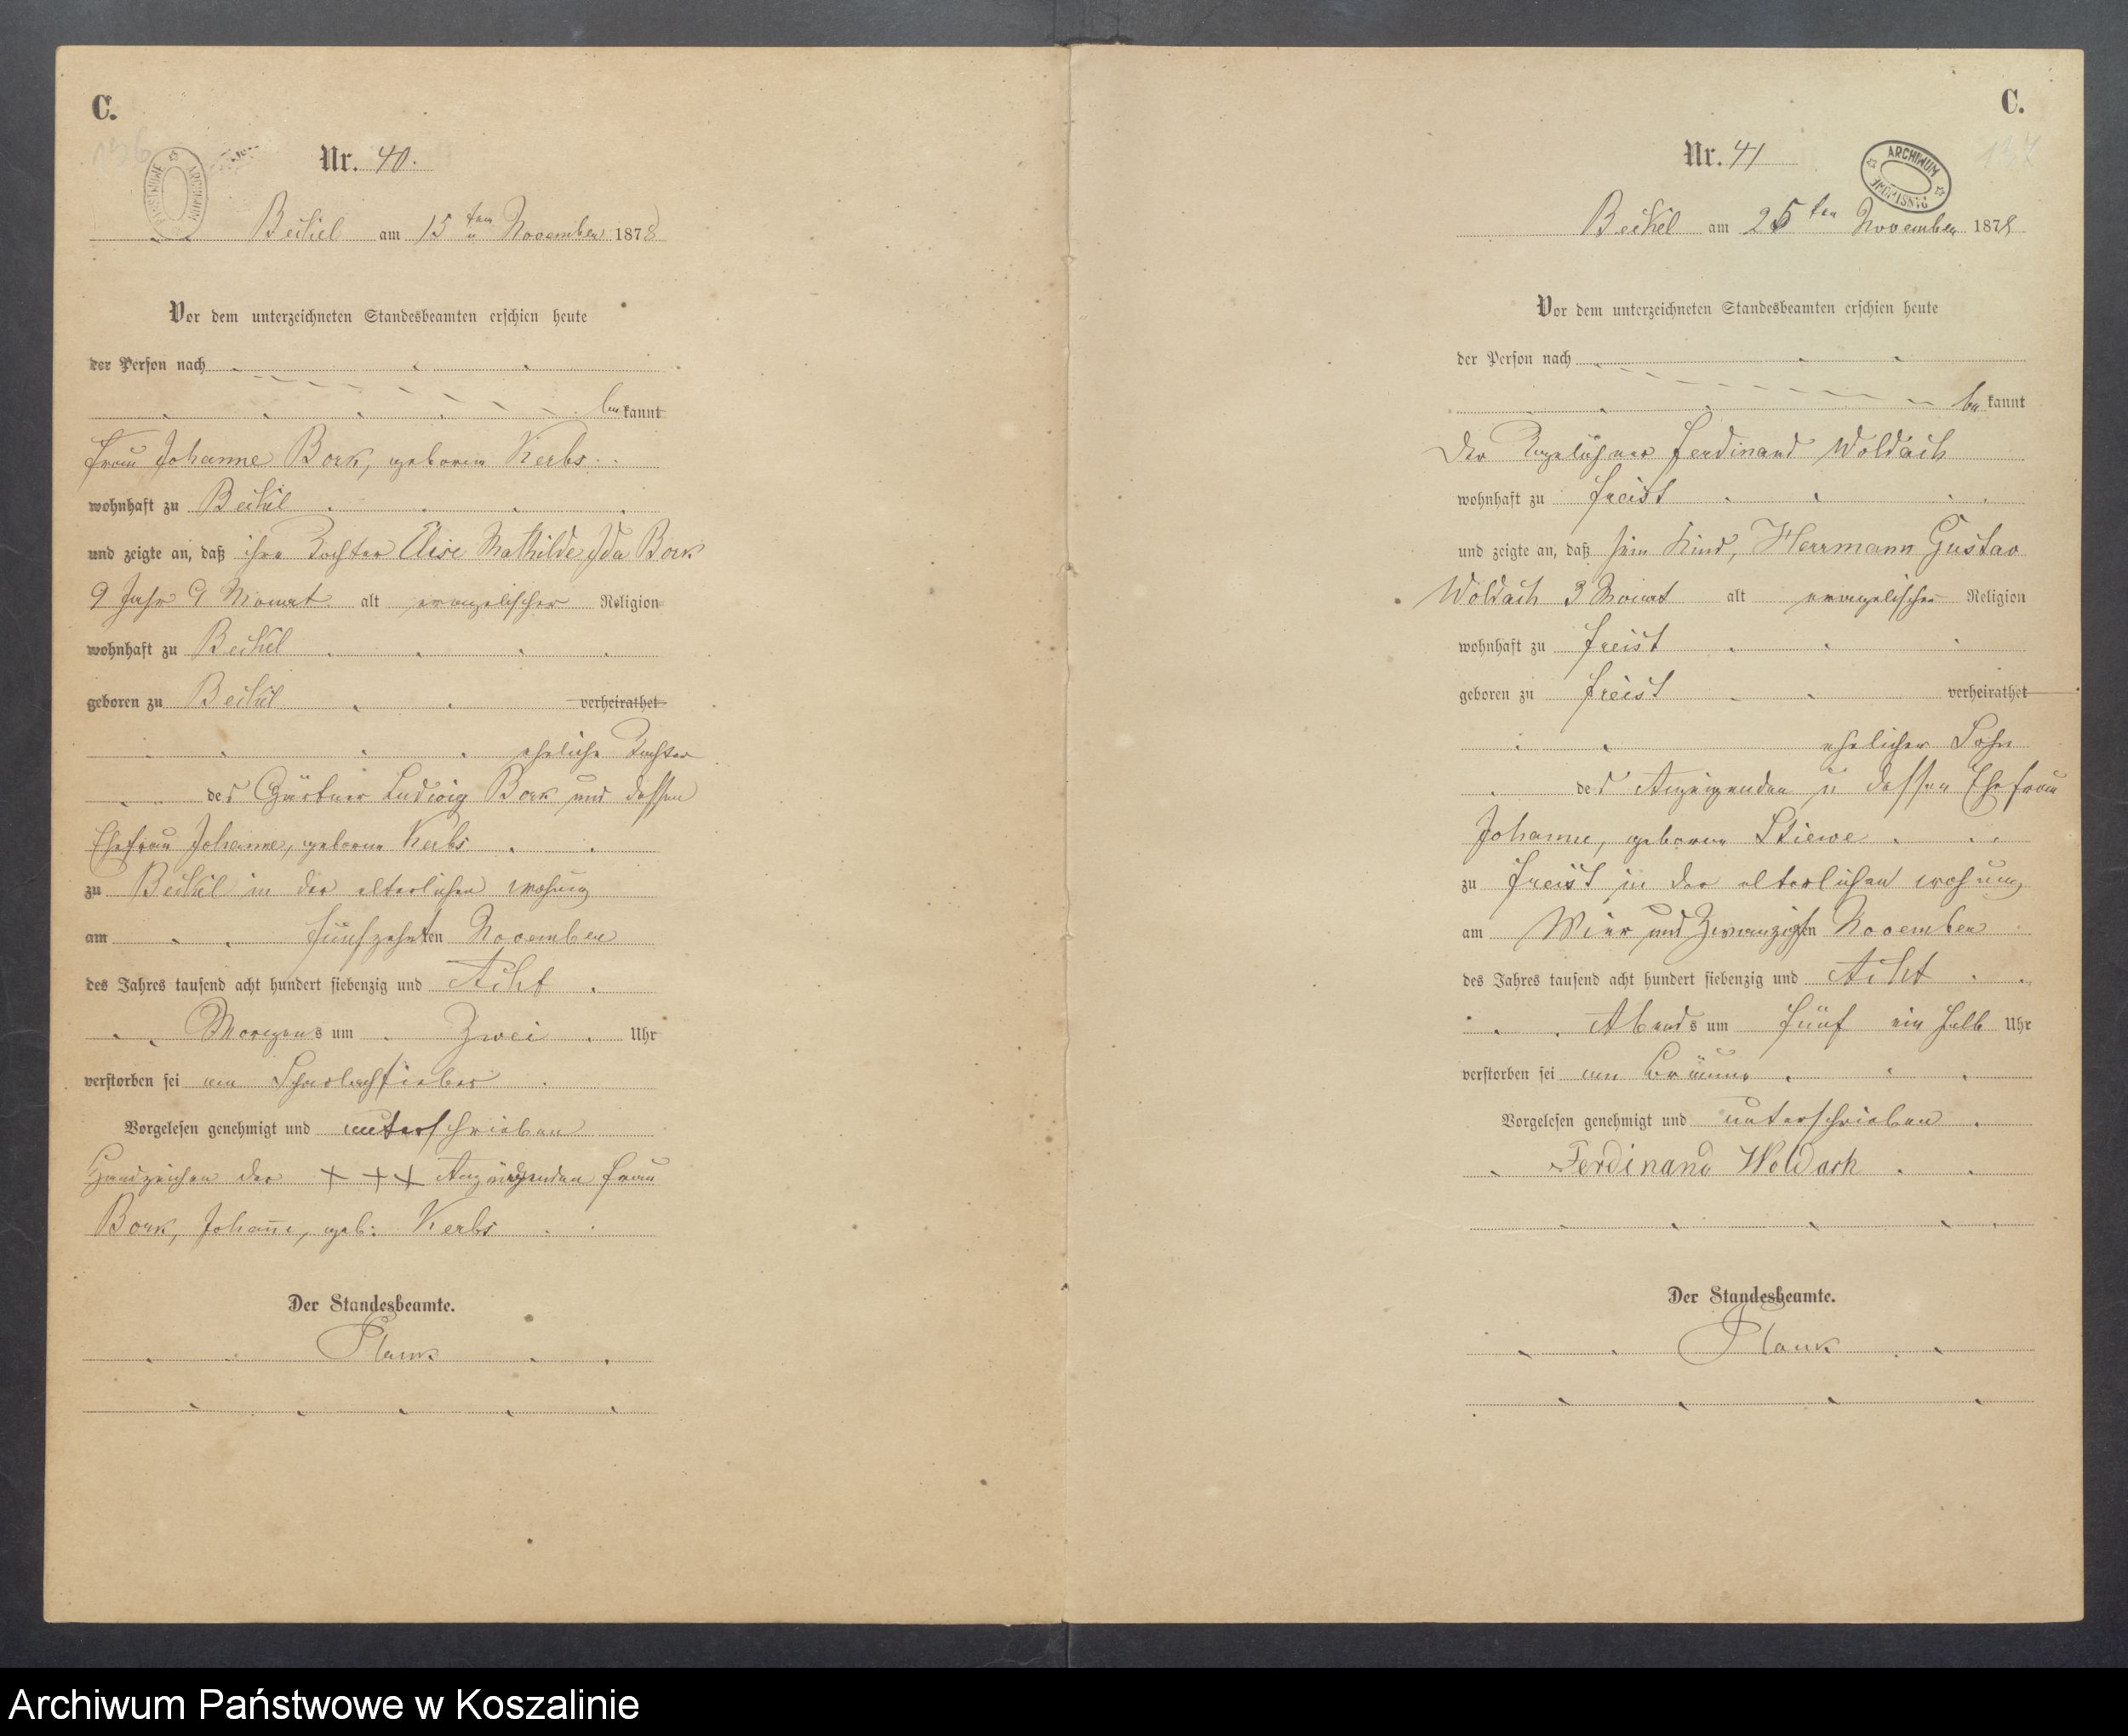 C.
Nr. 40.
Beckel am 15ten November 1878
Vor dem unterzeichneten Standesbeamten erschien heute
der Person nach
bekannt
Frau Johanne Bork, geboren Kerbs
wohnhaft zu Beckel
und zeigte an, daß ihre Tochter Elise Mathilde Ida Bork
9 Jahr 9 Monat alt evangelischer Religion
wohnhaft zu Beckel
geboren zu Beckel verheirathet
eheliche Tochter
des Gärtner Ludwig Bork und dessen
Ehefrau Johanne, geborne Kerbs
zu Beckel in der elterlichen wohnung
am fünfzehnten November
des Jahres tausend acht hundert siebenzig und Acht
Morgens um Zwei Uhr
verstorben sei am Scharlachfieber
Vorgelesen genehmigt und unterschrieben
Handzeichen der + + + Anzeigenden Frau
Bork, Johanne, geb: Kerbs
Der Standesbeamte.
C.
Nr. 41
ARCHIWUM PAŃSTWOWE
Beckel am 25ten November 1878
Vor dem unterzeichneten Standesbeamten erschien heute
der Person nach
bekannt
Der Tagelöhner Ferdinand Woldach
wohnhaft zu Freist
und zeigte an, daß sein Kind, Herrmann Gustav
Woldach 3 Monat alt evangelischer Religion
wohnhaft zu Freist
geboren zu Freist verheirathet
ehelicher Sohn
des Anzeigenden u dessen Ehefrau
Johanne, geboren Stiewe
zu Freist in der elterlichen wohnung
am Vier und Zwanzigsten November
des Jahres tausend acht hundert siebenzig und Acht
Abends um fünf ein halb Uhr
verstorben sei am Bräune
Vorgelesen genehmigt und unterschrieben
Ferdinand Woldach
Der Standesbeamte.
Archiwum Państwowe w Koszalinie